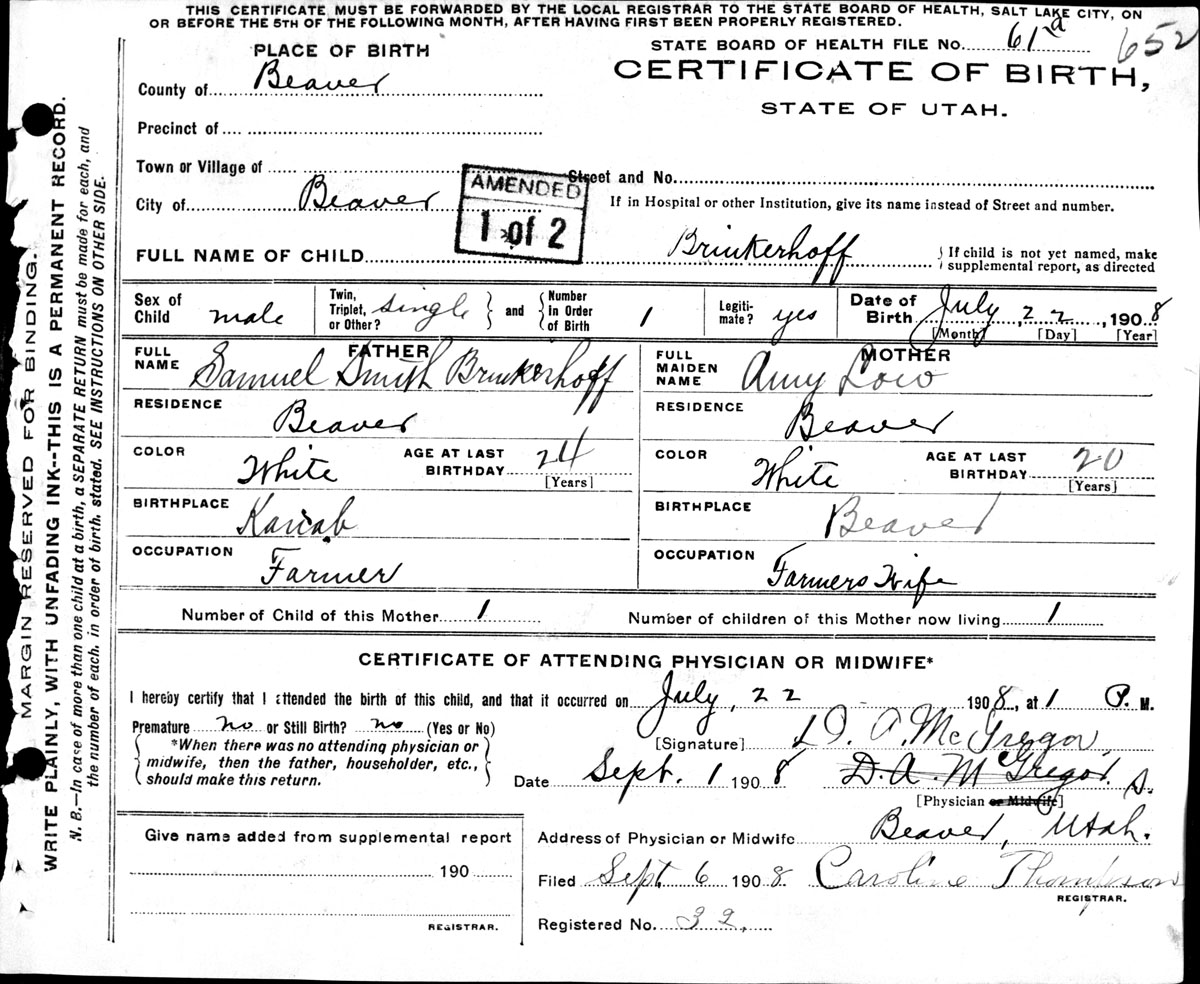 THIS CERTIFICATE MUST BE FORWARDED BY THE LOCAL REGISTRAR TO THE STATE BOARD OF HEALTH, SALT LAKE CITY, ON
OR BEFORE THE 5TH OF THE FOLLOWING MONTH, AFTER HAVING FIRST BEEN PROPERLY REGISTERED.
PLACE OF BIRTH
STATE BOARD OF HEALTH FILE No. 61a 652
County of Beaver
CERTIFICATE OF BIRTH,
STATE OF UTAH.
Precinct of
Town or Village of
Street and No.
AMENDED
1 of 2
City of Beaver
If in Hospital or other Institution, give its name instead of Street and number.
FULL NAME OF CHILD Brinkerhoff
If child is not yet named, make
supplemental report, as directed
Sex of Child male Twin, Triplet, or Other? single and Number In Order of Birth 1 Legiti- mate? yes Date of Birth July, 22, 1908
[Month] [Day] [Year]
FATHER
FULL NAME Samuel Smith Brinkerhoff
MOTHER
FULL MAIDEN NAME Amy Low
RESIDENCE Beaver
RESIDENCE Beaver
COLOR White AGE AT LAST BIRTHDAY 24
[Years]
COLOR White AGE AT LAST BIRTHDAY 20
[Years]
BIRTHPLACE Kanab
BIRTHPLACE Beaver
OCCUPATION Farmer
OCCUPATION Farmers Wife
Number of Child of this Mother 1 Number of children of this Mother now living 1
CERTIFICATE OF ATTENDING PHYSICIAN OR MIDWIFE*
I hereby certify that I attended the birth of this child, and that it occurred on July, 22 1908, at 1 P. M.
Premature no or Still Birth? no (Yes or No)
*When there was no attending physician or
midwife, then the father, householder, etc.,
should make this return.
[Signature] D. A. McGregor,
Date Sept. 1 1908 D. A. McGregor.
[Physician or Midwife]
Address of Physician or Midwife Beaver, Utah.
Filed Sept 6 1908. Caroline Thompson
REGISTRAR.
Registered No. 32,
Give name added from supplemental report
190
REGISTRAR.
MARGIN RESERVED FOR BINDING.
WRITE PLAINLY, WITH UNFADING INK--THIS IS A PERMANENT RECORD.
N. B.—In case of more than one child at a birth, a SEPARATE RETURN must be made for each, and
the number of each, in order of birth, stated. SEE INSTRUCTIONS ON OTHER SIDE.